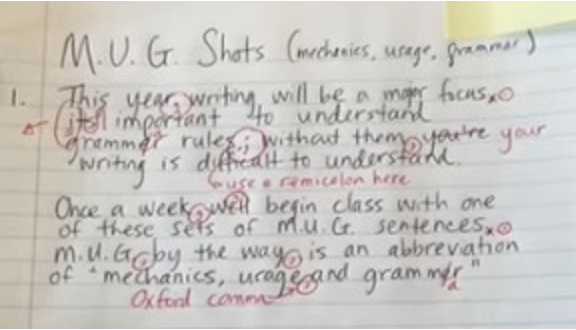 M.U.G. Shots (mechanics, usage, grammar)
1. This year, writing will be a major focus.
it's important to understand
grammar rules; without them, you're your
writing is difficult to understand.
use a semicolon here
Once a week, we'll begin class with one
of these sets of M.U.G. sentences.
M.U.G., by the way, is an abbrevation
of "mechanics, usage, and grammar"
Oxford comma